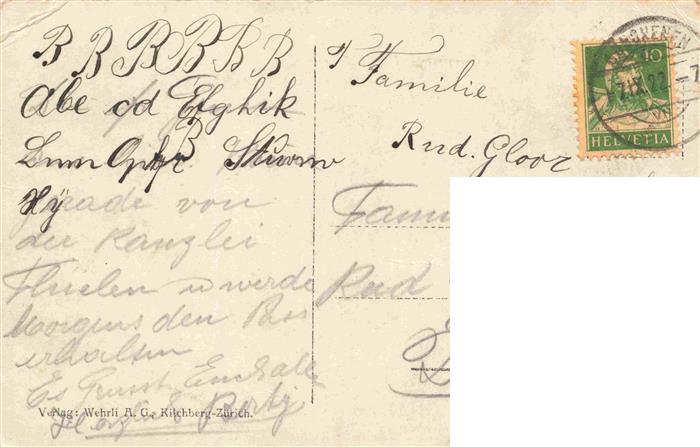 B B B B B B
Abc cd Efghik
Lmn Opqr. Stuvw
Xÿ
gerade von
der Kanzlei
Fluelen u werde
Morgens den Pass
erhalten
Es Grüsst Euch alle
Verlag: Wehrli A. G., Kilchberg-Zürich.
Familie
Rud. Gloor
Fami
Rud
10
HELVETIA